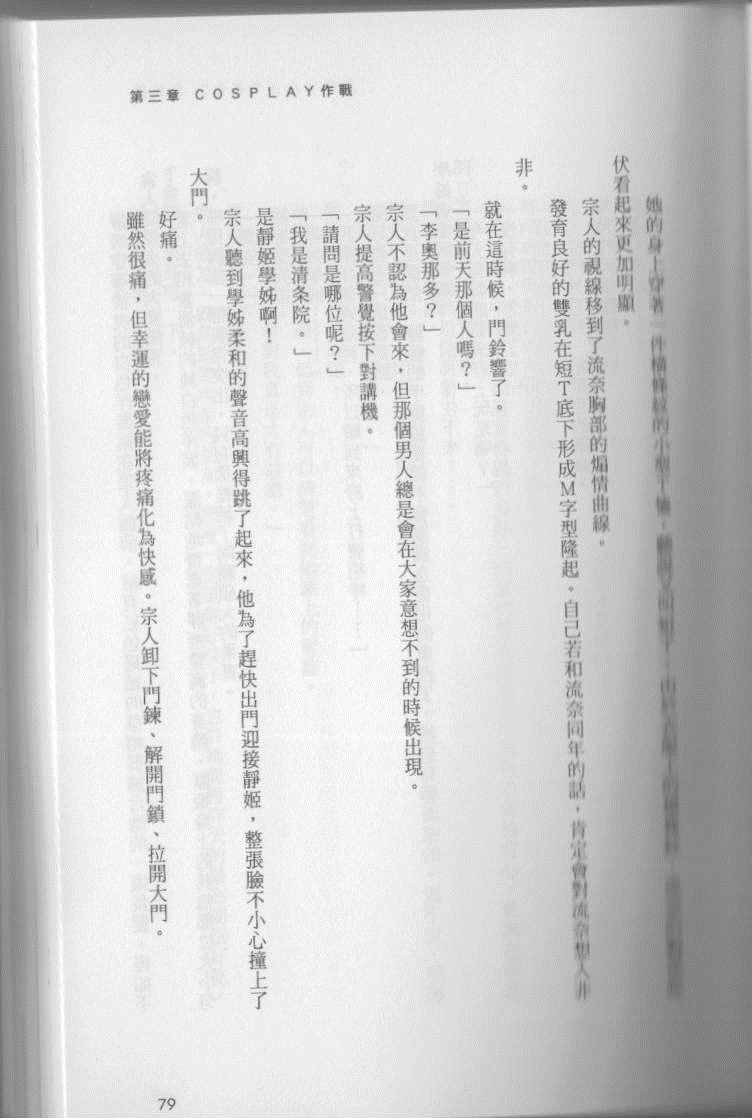 第三章 COSPLAY作戰
她的身上穿著一件橫條紋的小型T恤
伏看起來更加明顯。
宗人的視線移到了流奈胸部的煽情曲線。
發育良好的雙乳在短T底下形成M字型隆起。自己若和流奈同年的話，肯定會對流奈想入非
非。
就在這時候，門鈴響了。
「是前天那個人嗎？」
「李奧那多？」
宗人不認為他會來，但那個男人總是會在大家意想不到的時候出現。
宗人提高警覺按下對講機。
「請問是哪位呢？」
「我是清条院。」
是靜姬學姊啊！
宗人聽到學姊柔和的聲音高興得跳了起來，他為了趕快出門迎接靜姬，整張臉不小心撞上了
大門。
好痛。
雖然很痛，但幸運的戀愛能將疼痛化為快感。宗人卸下門鍊、解開門鎖、拉開大門。
79